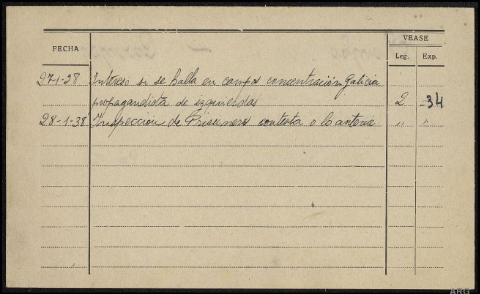 VEASE
FECHA
Leg. Exp.
27-1-38 Intereso si se halla en campos concentración Galicia
propagandista de izquierdas 2 -34
28-1-38 Inspección de Prisioneros contesta a lo anterior " "
ARG